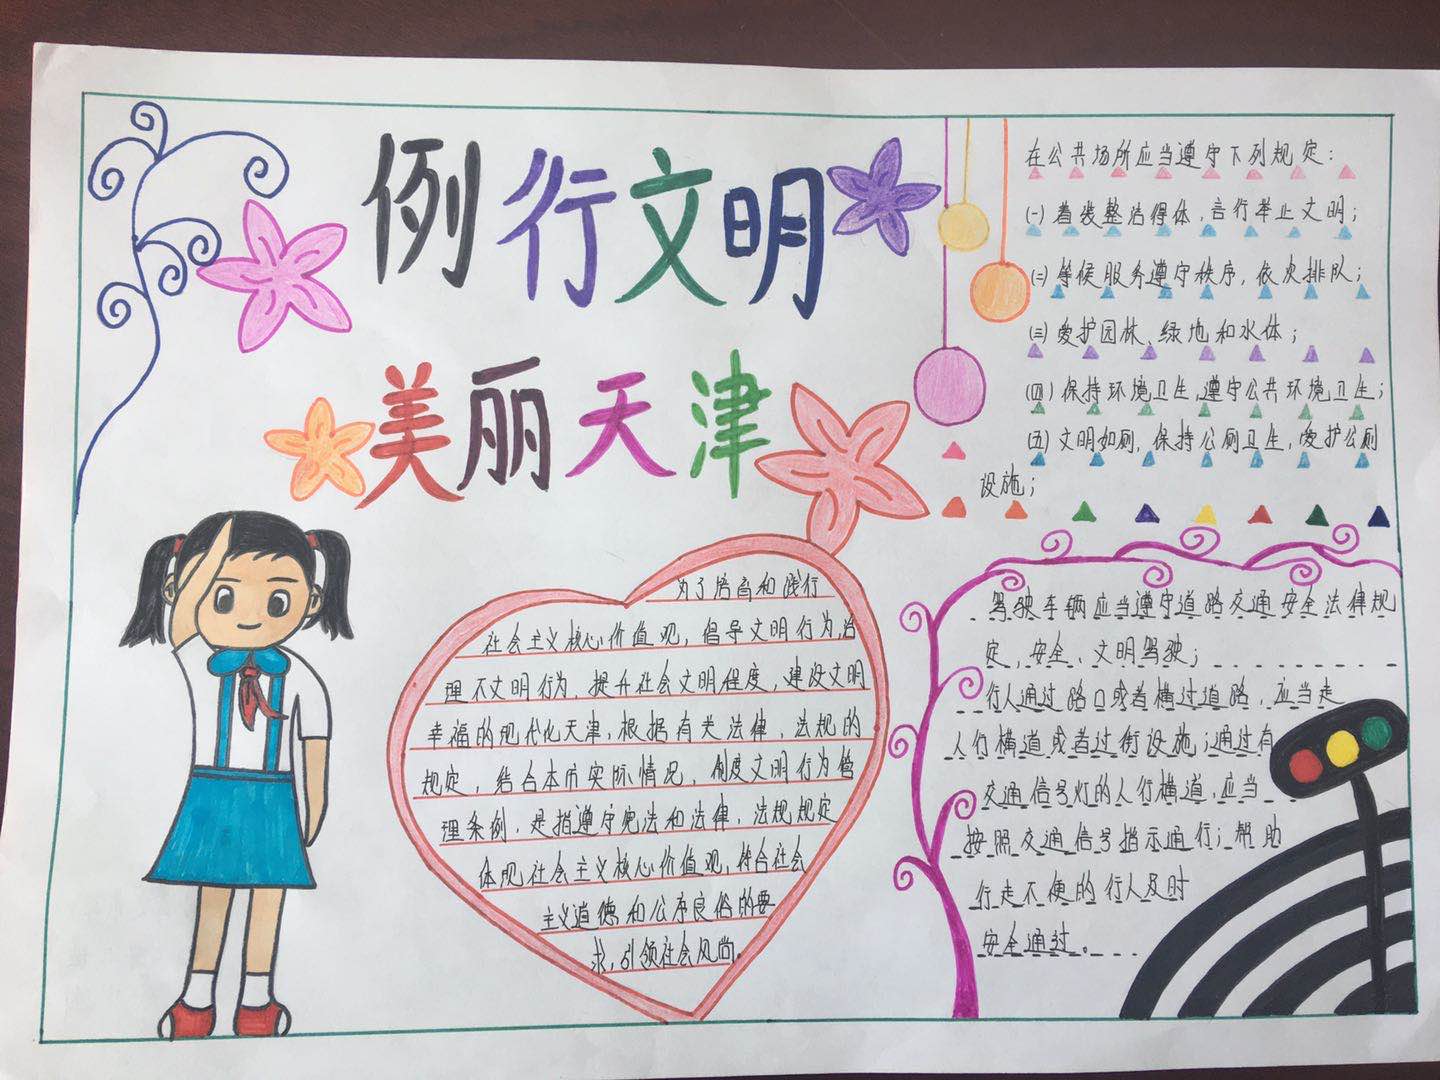 例行文明
美丽天津
在公共场所应当遵守下列规定：
(一)着装整洁得体，言行举止文明；
(二)等候服务遵守秩序，依次排队；
(三)爱护园林、绿地和水体；
(四)保持环境卫生，遵守公共环境卫生；
(五)文明如厕，保持公厕卫生，爱护公厕
设施；
为了培育和践行
社会主义核心价值观，倡导文明行为，治
理不文明行为，提升社会文明程度，建设文明
幸福的现代化天津，根据有关法律，法规的
规定，结合本市实际情况，制度文明行为管
理条例，是指遵守宪法和法律，法规规定
体现社会主义核心价值观，符合社会
主义道德和公序良俗的要
求，引领社会风尚。
驾驶车辆应当遵守道路交通安全法律规
定，安全、文明驾驶；
行人通过路口或者横过道路，应当走
人行横道或者过街设施；通过有
交通信号灯的人行横道，应当
按照交通信号指示通行；帮助
行走不便的行人及时
安全通过。